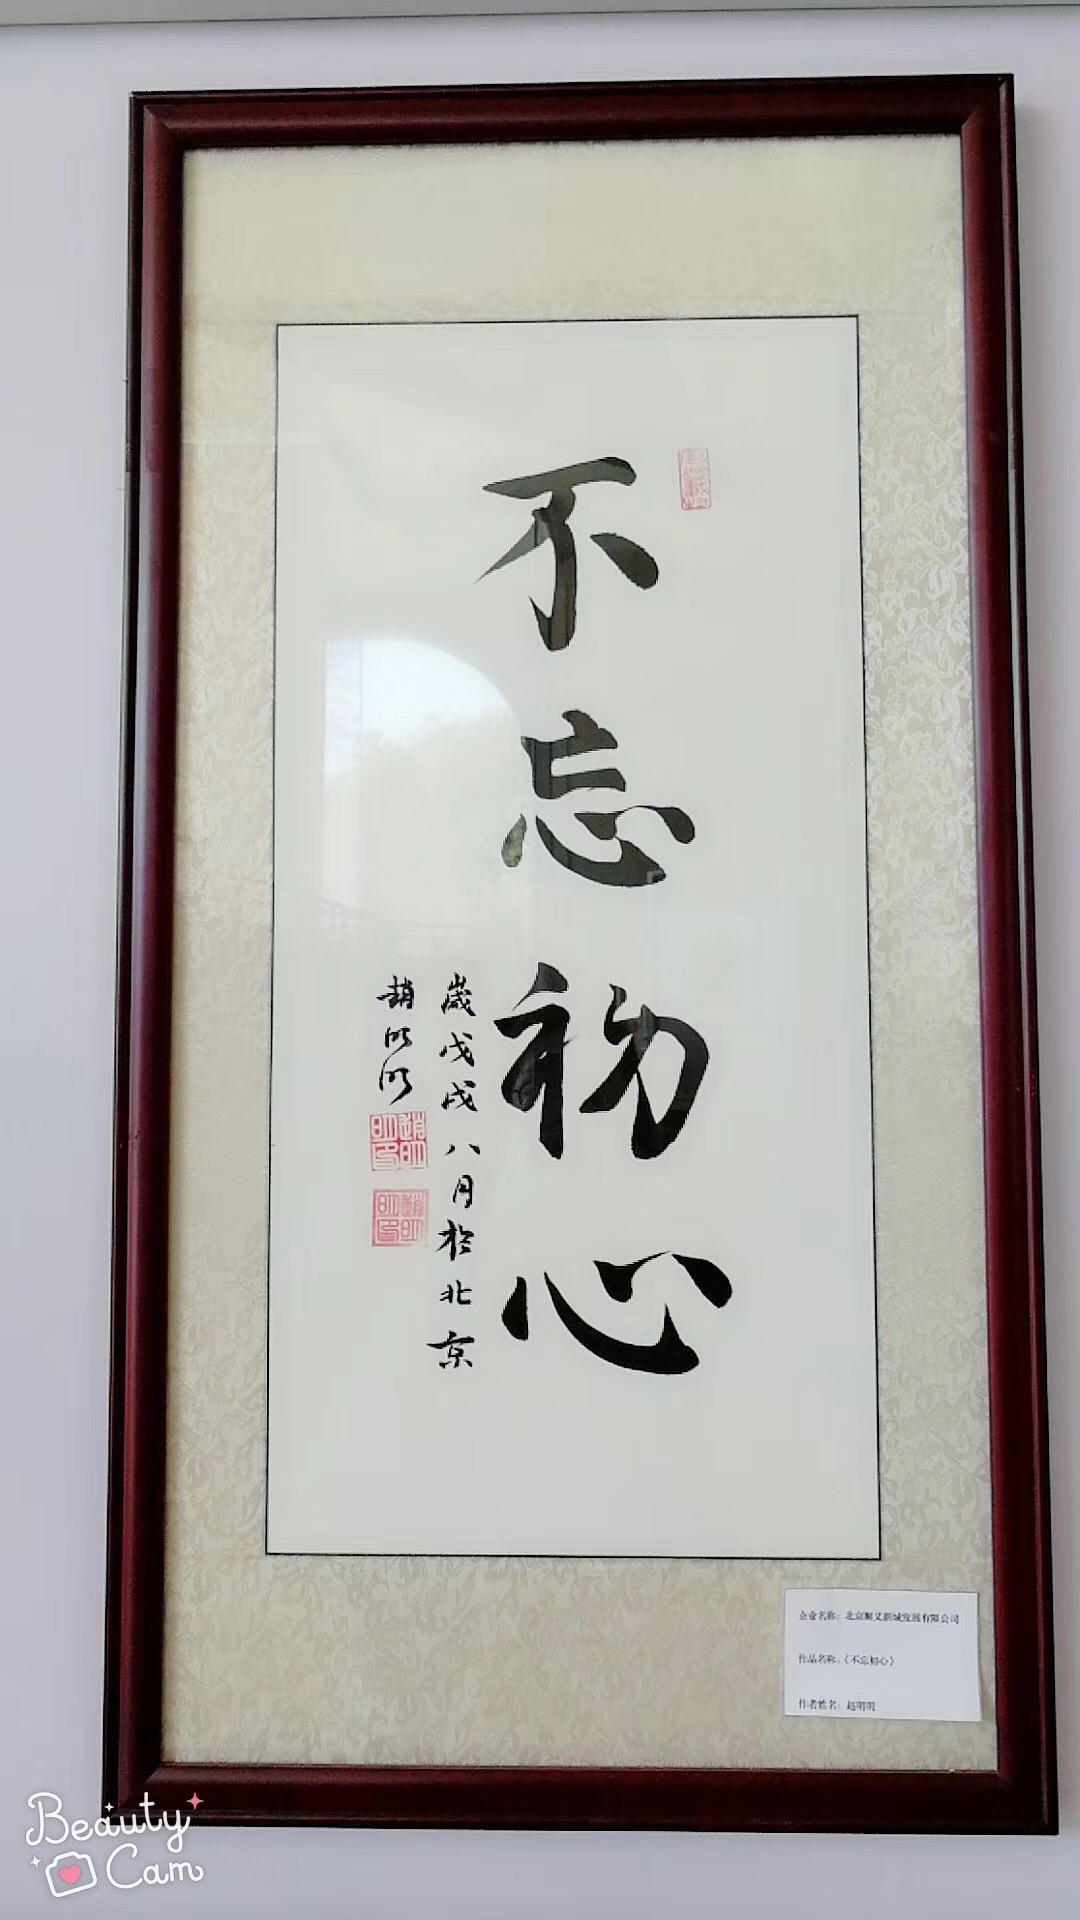 不忘初心
歲戊戌八月於北京
趙明明
企业名称：北京顺义新城发展有限公司
作品名称：《不忘初心》
作者姓名：赵明明
Beauty
Cam